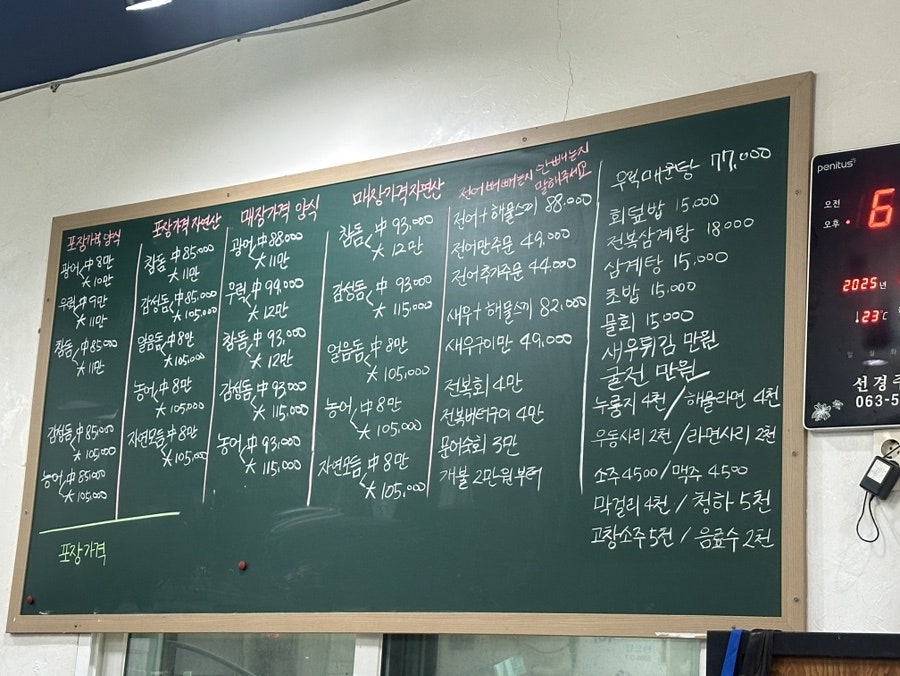 포장가격 양식
광어 中 8만
大 10만
우럭 中 9만
大 11만
참돔 中 85,000
大 11만
감성돔 中 85,000
大 105,000
농어 中 85,000
大 105,000
포장가격
포장가격자연산
참돔 中 85,000
大 11만
감성돔 中 85,000
大 105,000
얼음돔 中 8만
大 105,000
농어 中 8만
大 105,000
자연모듬 中 8만
大 105,000
매장가격 양식
광어 中 88,000
大 11만
우럭 中 99,000
大 12만
참돔 中 93,000
大 12만
감성돔 中 93,000
大 115,000
농어 中 93,000
大 115,000
매장가격자연산
참돔 中 93,000
大 12만
감성돔 中 93,000
大 115,000
얼음돔 中 8만
大 105,000
농어 中 8만
大 105,000
자연모듬 中 8만
大 105,000
전어 뼈빼는지 안빼는지
말해주세요
전어+해물스끼 88,000
전어만주문 49,000
전어추가주문 44,000
새우+해물스끼 82,000
새우구이만 49,000
전복회 4만
전복버터구이 4만
문어숙회 3만
개불 2만원부터
우럭매운탕 77,000
회덮밥 15,000
전복삼계탕 18,000
삼계탕 15,000
초밥 15,000
물회 15,000
새우튀김 만원
굴전 만원
누룽지 4천 / 해물라면 4천
우동사리 2천 / 라면사리 2천
소주 4500 / 맥주 4500
막걸리 4천 / 청하 5천
고창소주 5천 / 음료수 2천
penitus
오전
오후
6
2025년
23℃
선경주
063-5